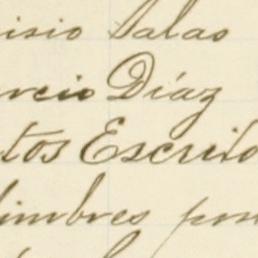 isio Salas
rcio Díaz
tos Escrito
imbres por